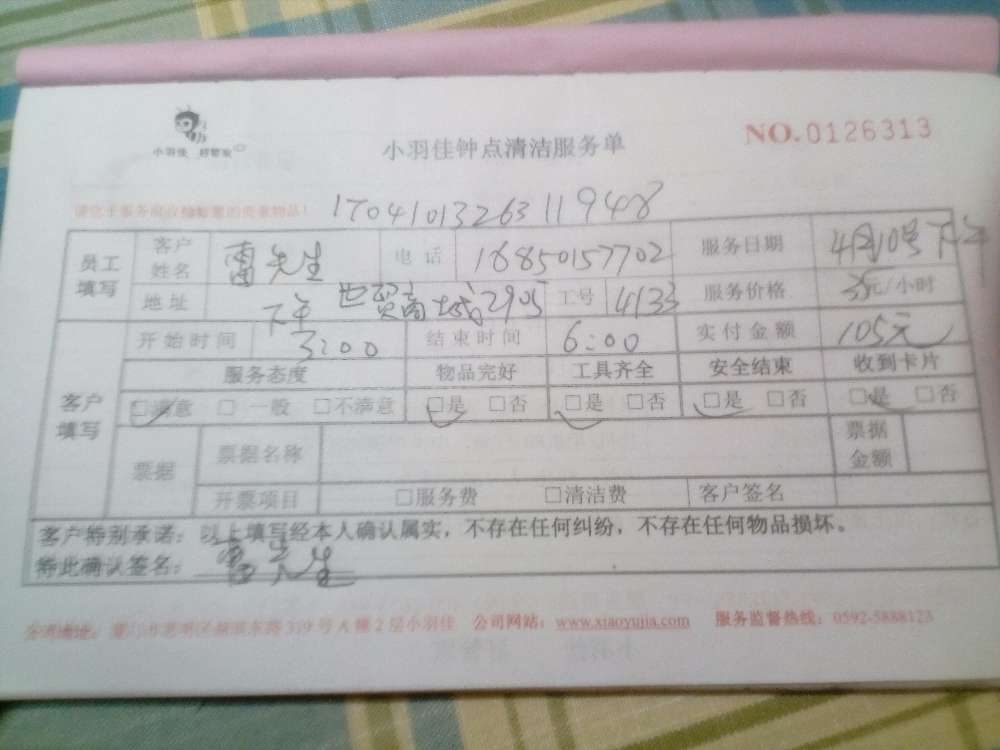 小羽佳 好管家
小羽佳钟点清洁服务单
NO.0126313
17041013263119948
员工填写 客户姓名 雷先生 电话 16850157702 服务日期 4月10号下午
地址 世贸商城2905 工号 4133 服务价格 35元/小时
客户填写 开始时间 下午3:00 结束时间 6:00 实付金额 105元
服务态度 物品完好 工具齐全 安全结束 收到卡片
□满意 □一般 □不满意 □是 □否 □是 □否 □是 □否 □是 □否
票据 票据名称 票据金额
开票项目 □服务费 □清洁费 客户签名
客户特别承诺：以上填写经本人确认属实，不存在任何纠纷，不存在任何物品损坏。
特此确认签名：雷先生
公司地址：厦门市思明区 319号A幢2层小羽佳 公司网站：www.xiaoyujia.com 服务监督热线：0592-5888123